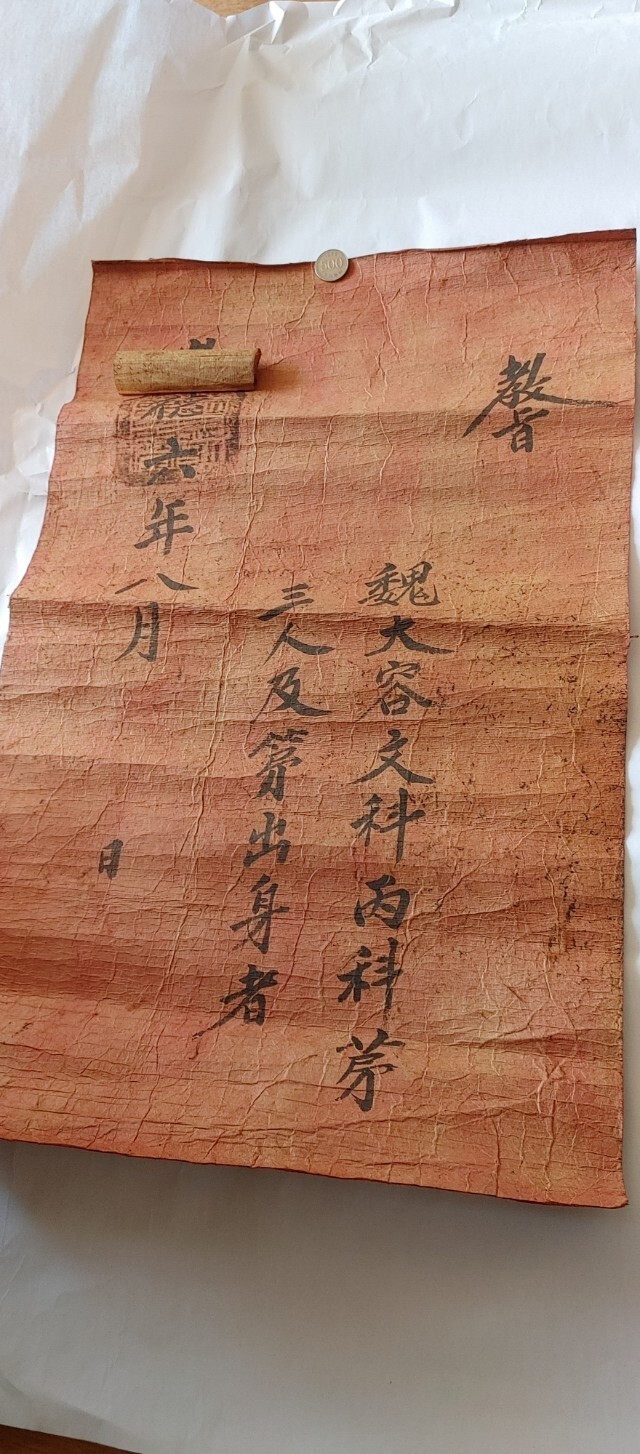 教旨
魏大容文科丙科苐
三人及苐出身者
德六年八月
日
500